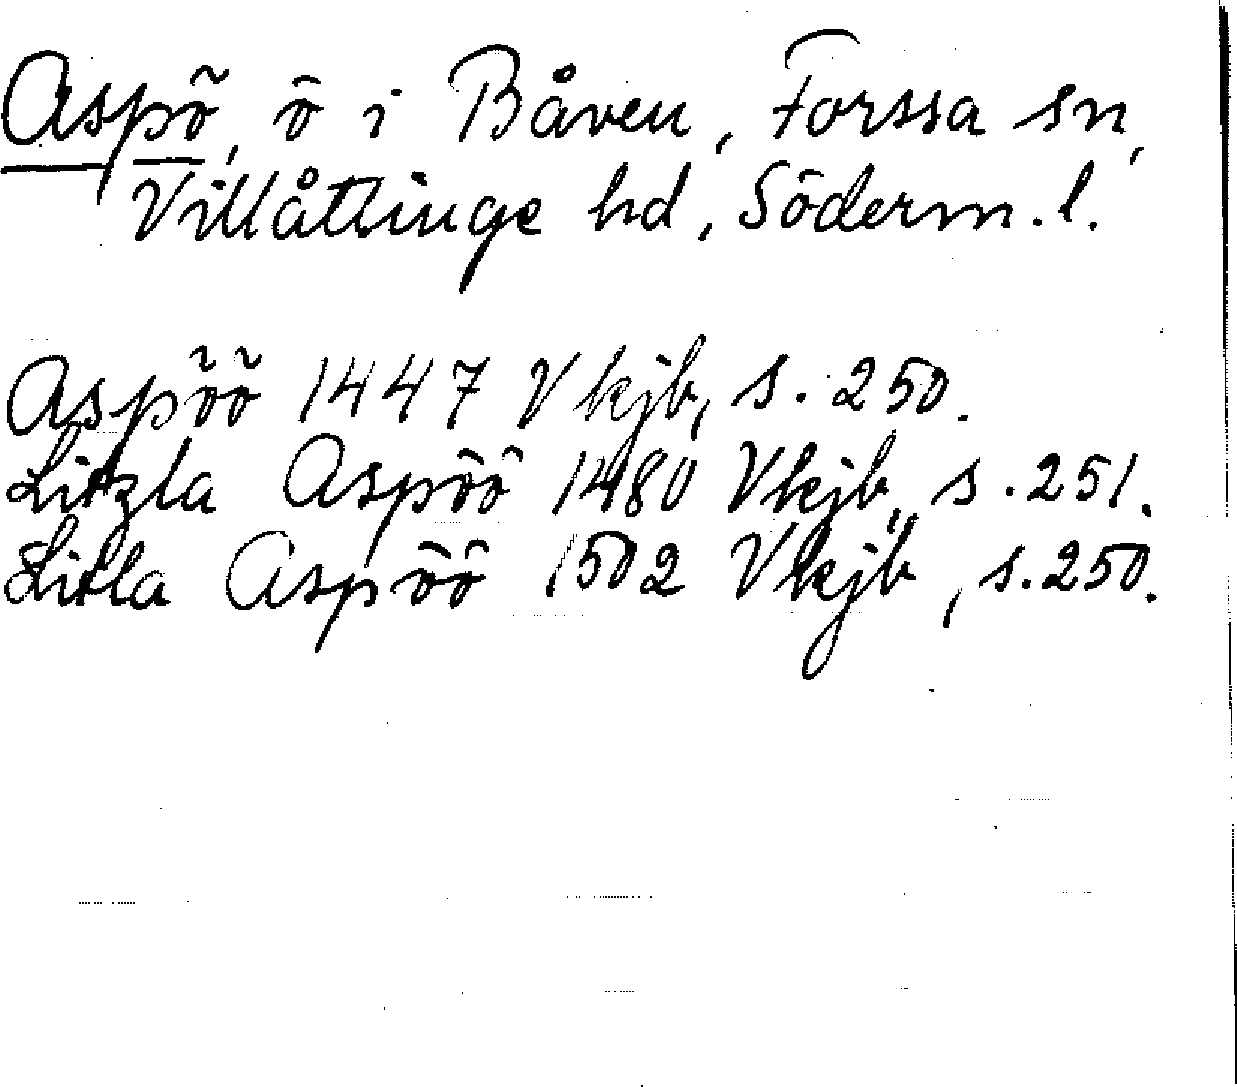 Aspö, ö i Båven, Forssa sn,
Villåttinge hd, Söderm. l.
Aspöö 1447 Vkjb, s. 250.
Litzla Aspöö 1480 Vkjb, s. 251.
Litla Aspöö 1502 Vkjb, s. 250.